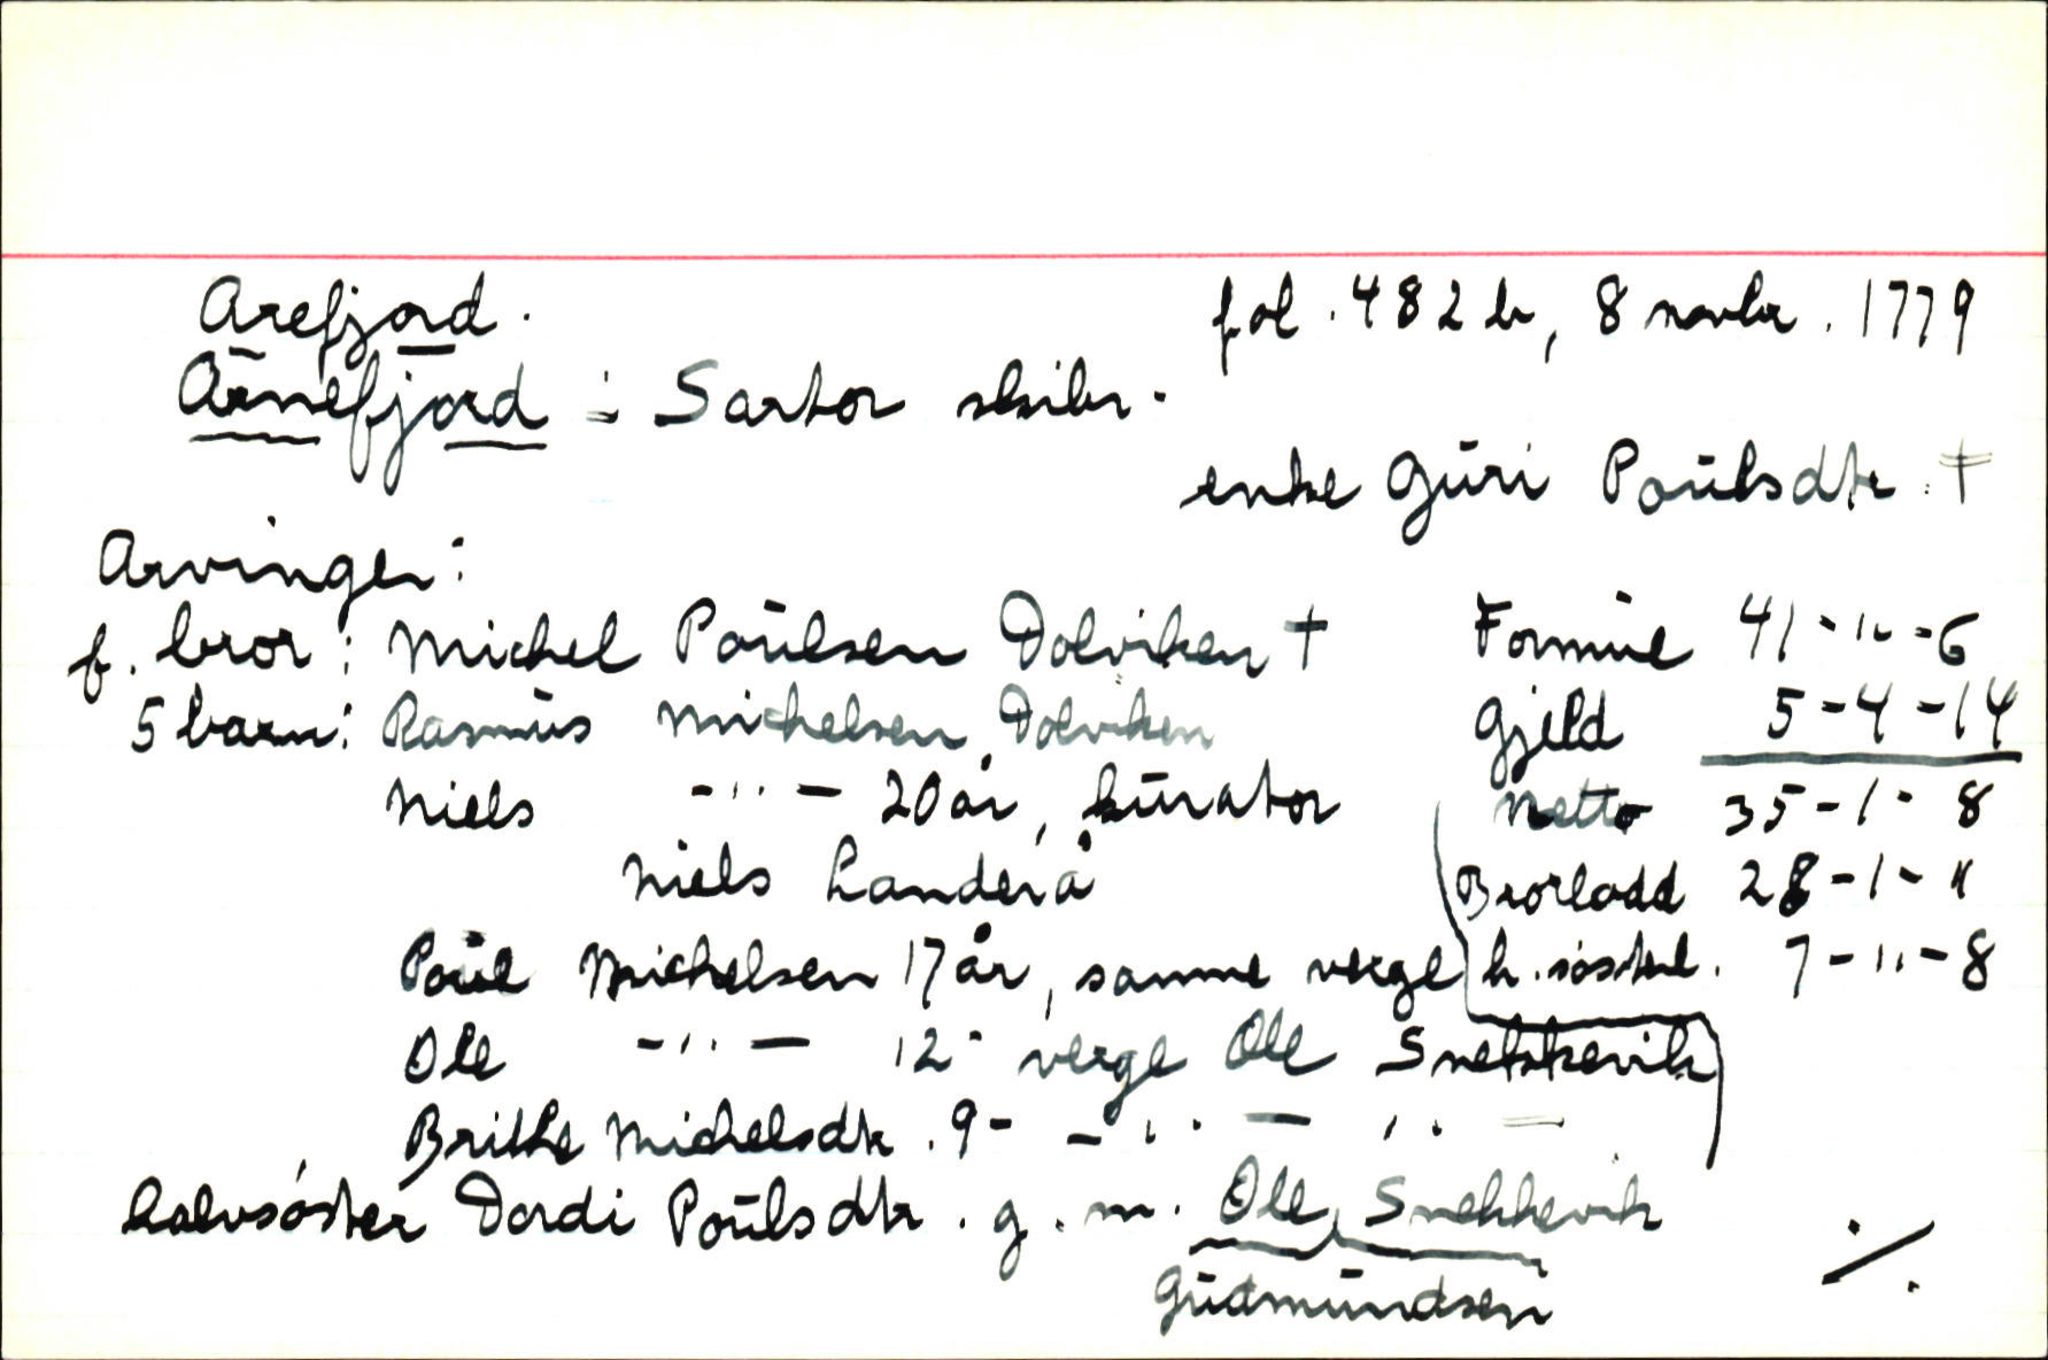 Arefjord. fol. 482 b, 8 novbr. 1779
Arnefjord i Sartor skibr.
enke Guri Poulsdtr. †
Arvinger:
f. bror: Michel Poulsen Dolviken † Formue 41-"-6
5 barn: Rasmus Michelsen Dolviken Gjeld 5-4-14
Niels -"- 20 år, kurator Netto 35-1-8
Niels Landerå Brorlodd 28-1-"
Poul Michelsen 17 år, samme verge h. søsterl. 7-"-8
Ole -"- 12- verge Ole Snekkevik
Brithe Michelsdtr. 9- -"- "=
halvsøster Dordi Poulsdtr. g. m. Ole Snekkevik ./.
Gudmundsen